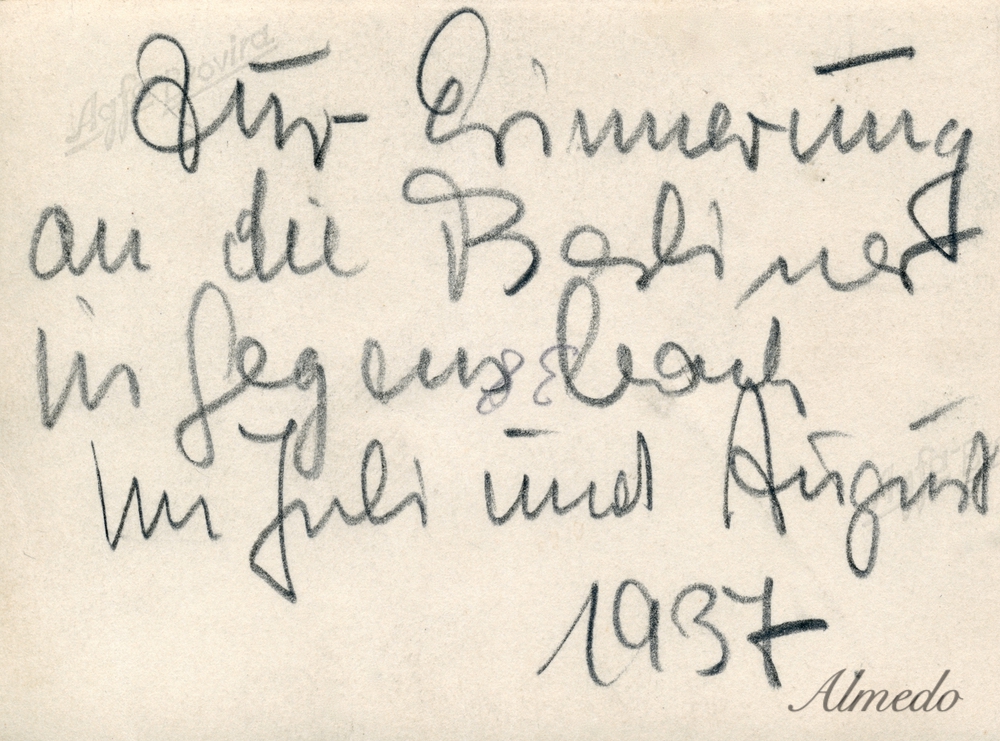 Agfa Lovira
Zur Erinnerung
an die Berliner
in Gegensbach
38
im Juli und August
1937
Almedo